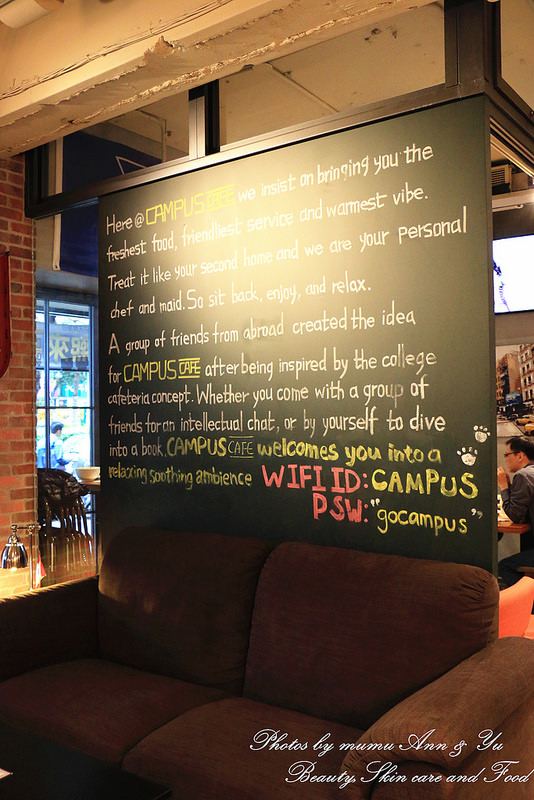 Here @ CAMPUS CAFE we insist on bringing you the
freshest food, friendliest service and warmest vibe.
Treat it like your second home and we are your personal
chef and maid. So sit back, enjoy, and relax.
A group of friends from abroad created the idea
for CAMPUS CAFE after being inspired by the college
cafeteria concept. Whether you come with a group of
friends for an intellectual chat, or by yourself to dive
into a book, CAMPUS CAFE welcomes you into a
relaxing soothing ambience WIFI ID: CAMPUS
PSW: "gocampus"
Photos by mumu Ann & Yu
Beauty, Skin care and Food